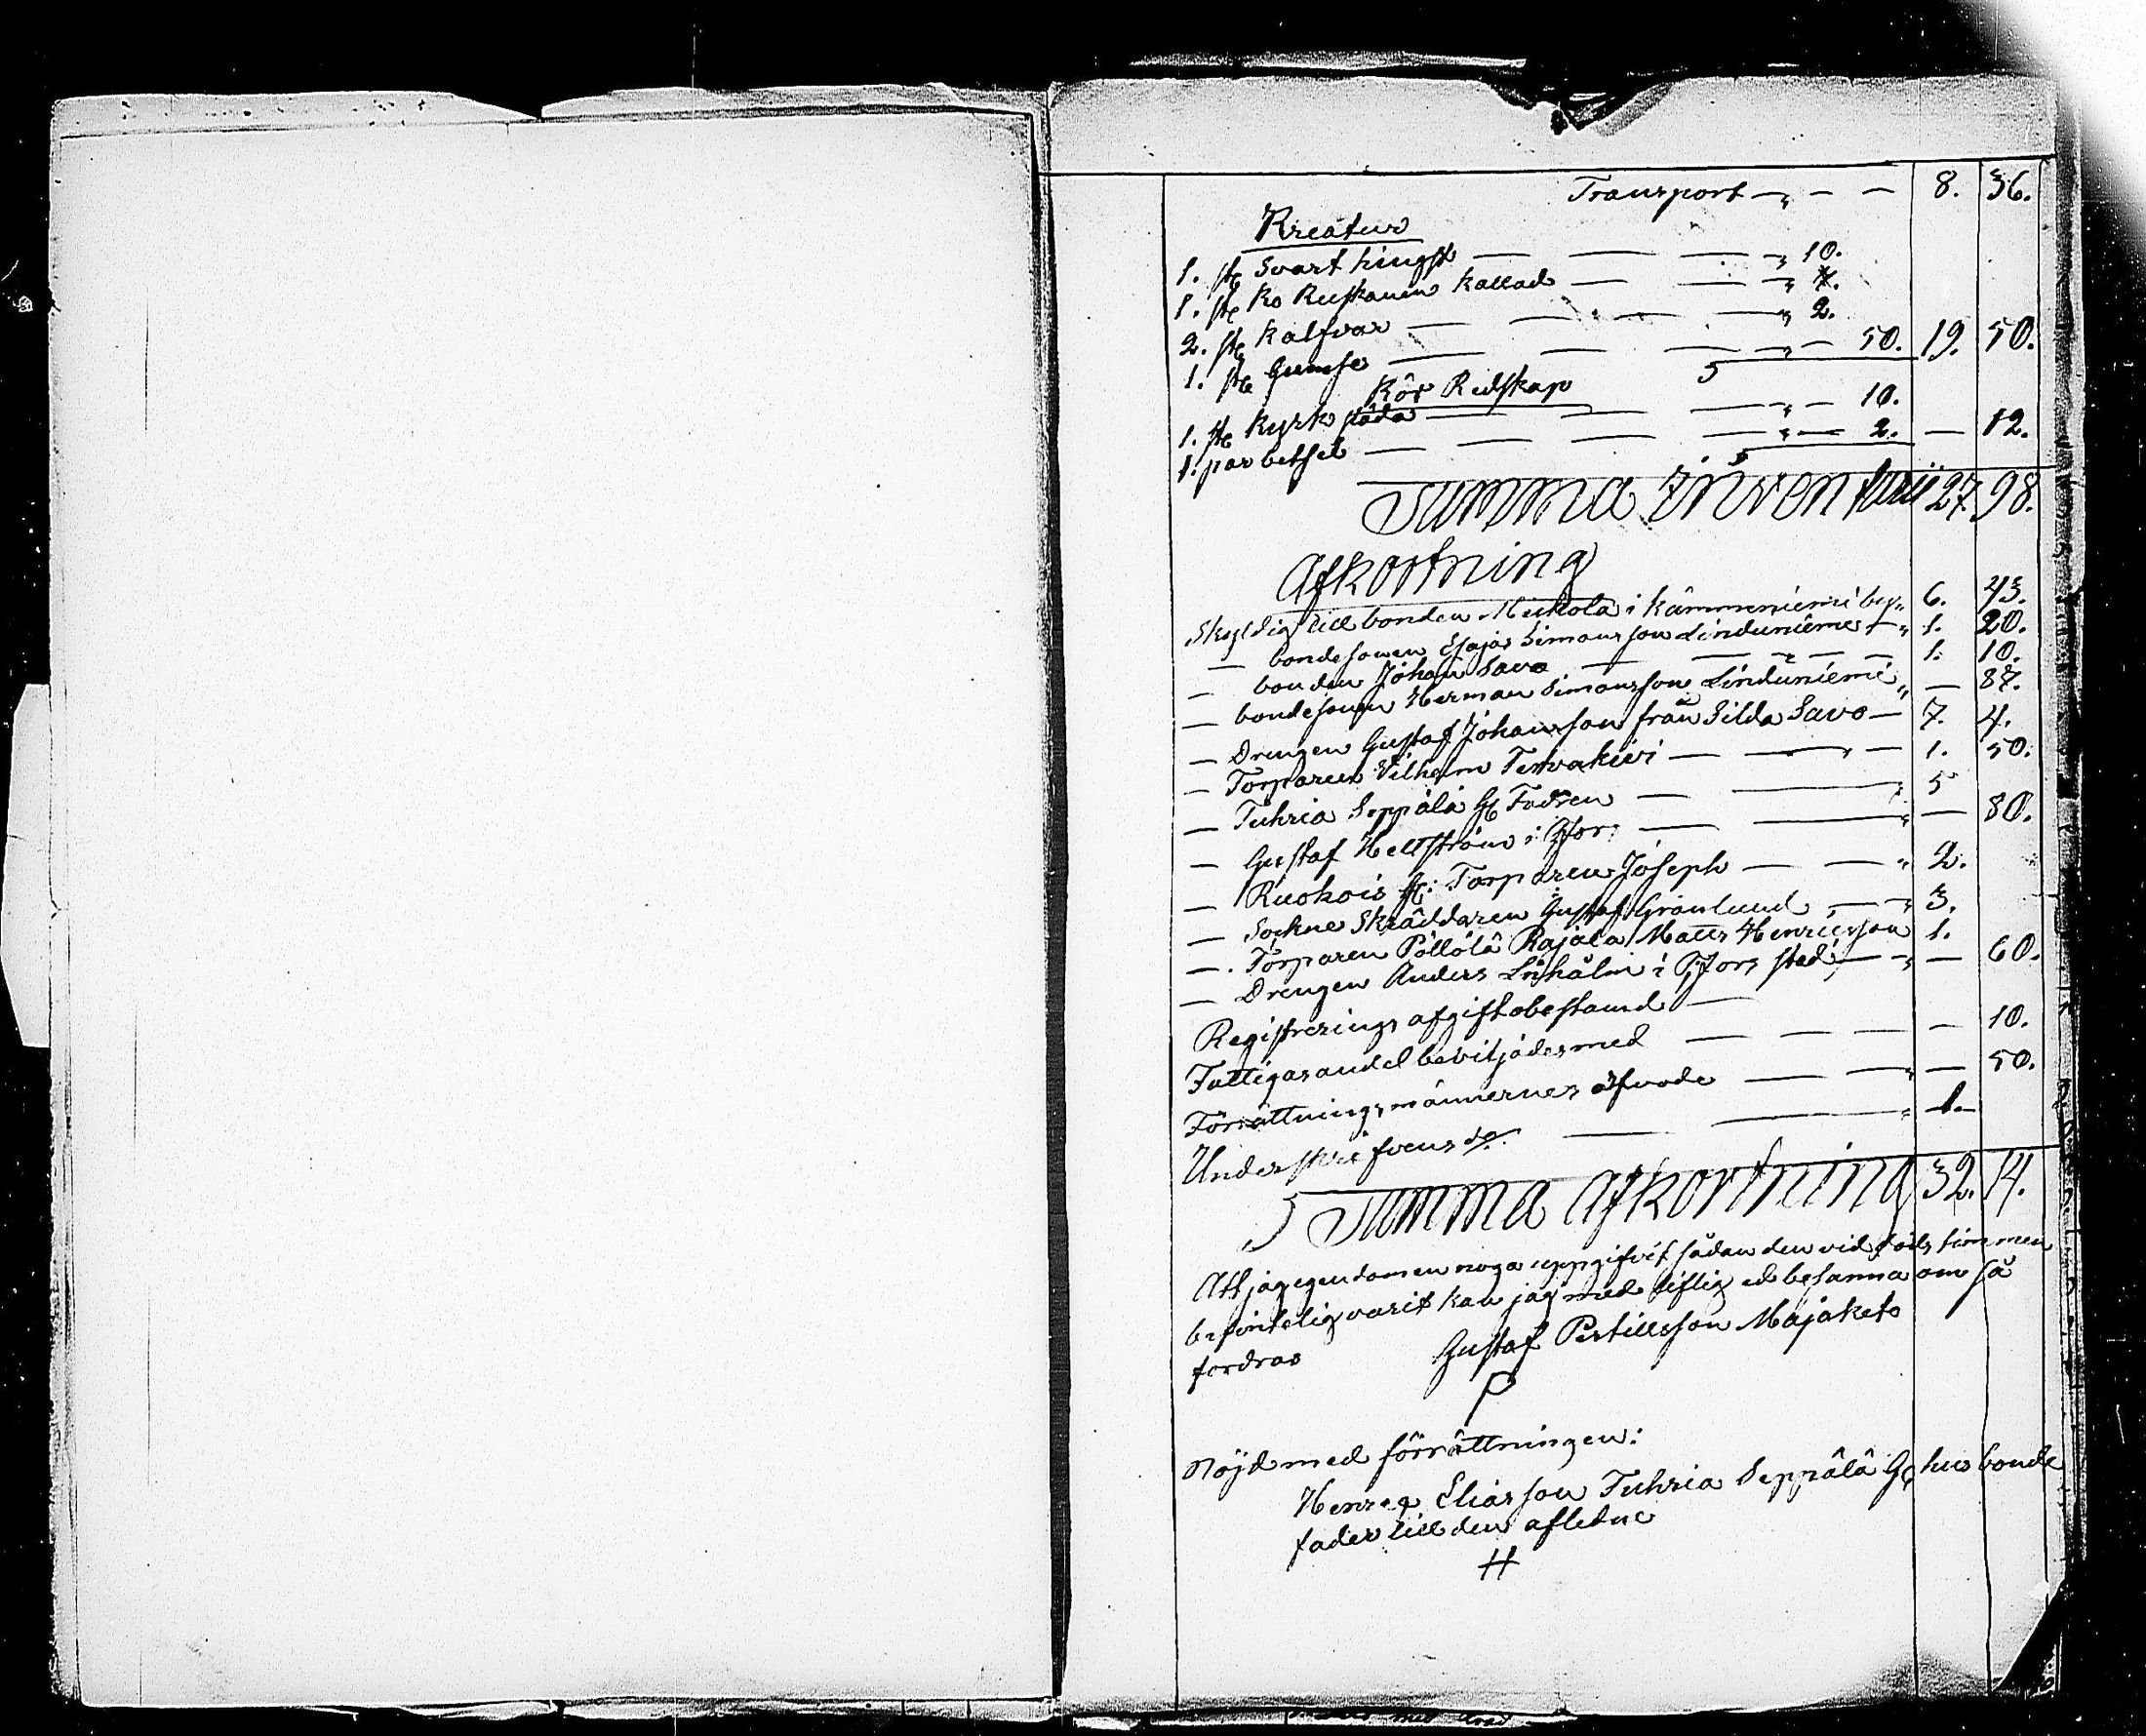 Transport — „ — — 8. 36.
Kreatur
1. st Svart hingst — — — „ 10.
1. st Ko Ruskanen kallad — — „ 7.
2. st Kalfvar — — — „ 2.
1. st Gumse — — — „ — 50. 19. 50.
Kör Redskap
1. st Kyrk släda — — — „ — 10.
1. par betsel — — — — „ — 2. — 12.
Summa Inventarii 27. 98.
Afkortning
Skyldig till bonden Mickola i Kämmeniemi by „ 6. 43.
— bondesonen Esajas Simonsson Linduniemi — „ 1. 20.
— bonden Johan Savo — — — — 1. 10.
— bondesonen Herman Simonsson Linduniemi „ — 87.
— Drengen Gustaf Johansson från Silda Savo — 7. 4.
— Torparen Vilhelm Tervakivi — — „ — 1. 50.
— Tuhria Seppälä Fadren — — „ 5
— Gustaf Hellström i — — „ — 80.
— Ruokois Torparen Joseph — — „ 2.
— Sockne Skräddaren Gustaf Grönlund — „ 3.
— Torparen Pöllölä Rajala Matts Henricsson 1.
— Drengen Anders i stad — „ — 60.
Registrerings afgift obestämd —
Fattigas andel beviljades med — — — — — 10.
Förrättningsmännernes arfvode — — „ — 50.
Underskrifvens do — — „ 1. —
Summa Afkortning 32. 14.
Att jag egendomen noga uppgifvit sådan den vid döds timmen
befintelig varit kan jag med liflig ed besanna om så
fordras Gustaf Pertillsson Majaketo
P
Nöjd med förrättningen:
Henreq Eliasson Tuhria Seppälä husbonde
fader till den aflednе
H